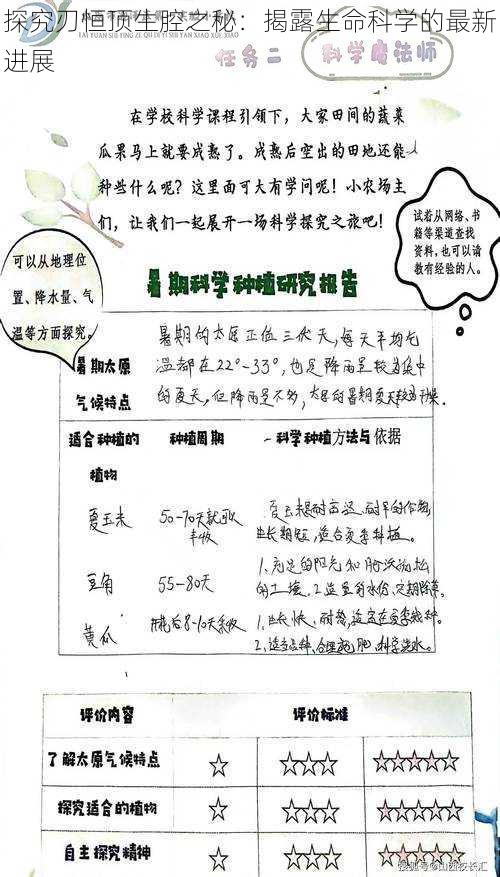 探究刃恒顶生腔之秘：揭露生命科学的最新
进展
任务二
科学魔法师
在学校科学课程引领下，大家田间的蔬菜
瓜果马上就要成熟了。成熟后空出的田地还能
种些什么呢？这里面可大有学问呢！小农场主
们，让我们一起展开一场科学探究之旅吧！
试着从网络、书
籍等渠道查找
资料，也可以请
教有经验的人。
可以从地理位
置、降水量、气
温等方面探究。
暑期科学种植研究报告
暑期太原
气候特点
暑期的太原正值三伏天，每天平均气
温都在22°-33°，也是降雨量较为集中
的夏天。但降雨量不多，太原的暑期夏天较为干燥。
适合种植的
植物
种植周期
科学种植方法与依据
夏玉米
50-70天就可以
丰收
生长期短，适合夏季种植。
豆角
55-80天
1、充足的阳光和肥沃疏松
的土壤。2、适量的水份、定期除草。
黄瓜
开花后8-10天采收
1、生长快、耐热、适宜在夏季栽种。
2、适当品种、合理施肥、科学浇水。
评价内容
评价标准
了解太原气候特点
☆
☆☆☆
☆☆☆☆☆
探究适合的植物
☆
☆☆☆
☆☆☆☆☆
自主探究精神
☆
☆☆☆
☆☆☆☆☆
搜狐号@山西校长汇